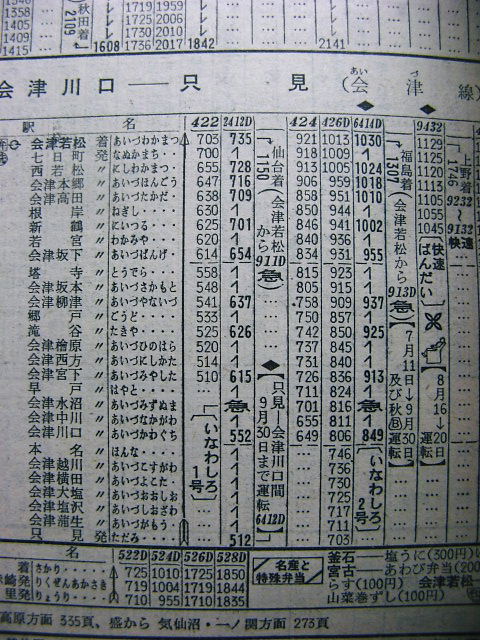 1358
1405
1409
1415
秋田着
2109
1608
1719 1959
1725 2006
1730 2010
1736 2017 1842
2141
会津川口――只見(会津線)
あい づ
駅 名 422 2412D 424 426D 6414D 9432
会津若松 着 あいづわかまつ 703 735 921 1013 1030 1129
七日町 発 なぬかまち 700 918 1009 1125
西若松 〃 にしわかまつ 655 728 913 1005 1024 1120
会津本郷 〃 あいづほんごう 647 716 906 959 1018 1113
会津高田 〃 あいづたかだ 638 709 858 951 1010 1105
根岸 〃 ねぎし 630 850 944 1055
新鶴 〃 にいつる 625 701 846 941 1002 1045
若宮 〃 わかみや 620 840 936
会津坂下 〃 あいづばんげ 614 654 834 931 955 1032
塔寺 〃 とうでら 558 815 923
会津坂本 〃 あいづさかもと 548 805 915
会津柳津 〃 あいづやないづ 541 637 758 909 937
郷戸 〃 ごうど 533 750 900
滝谷 〃 たきや 525 626 742 850 925
会津檜原 〃 あいづひのはら 520 737 845
会津西方 〃 あいづにしかた 514 731 840
会津宮下 〃 あいづみやした 510 615 726 836 913
早戸 〃 はやと 711 824
会津水沼 〃 あいづみずぬま 701 816
会津中川 〃 あいづなかがわ 655 811
会津川口 〃 あいづかわぐち 552 649 806 849
本名 〃 ほんな 746
会津越川 〃 あいづこすがわ 736
会津横田 〃 あいづよこた 730
会津大塩 〃 あいづおおしお 726
会津塩沢 〃 あいづしおざわ 717
会津蒲生 〃 あいづがもう 711
只見 発 ただみ 512 703
いなわしろ1号
急
仙台着1150(会津若松から911D急)
◆【只見―会津川口間9月30日まで運転6412D】
いなわしろ2号
急
福島着1307(会津若松から913D急)
【7月11日→8月31日及び秋
9月30日運転】
快速ばんだい
【8月16→20日運転】
上野着1746
9232~9132
快速
名 522D 524D 526D 528D
着 さかり 725 1010 1725 1850
崎発 りくぜんあかさき 719 1004 1719 1844
里発 りょうり 710 955 1710 1835
名産と特殊弁当
釜石 塩うに(300円)
宮古 あわび弁当(200
らす(100円) 会津若松
山菜巻ずし(100円)
高原方面 335頁、盛から 気仙沼・一ノ関方面 273頁